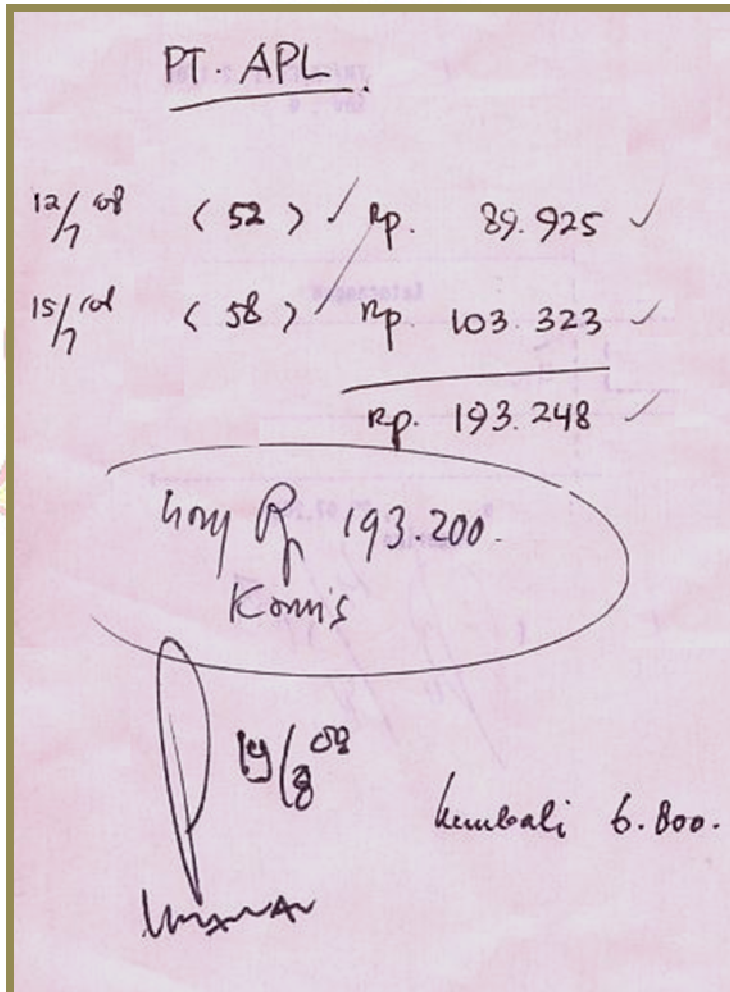 PT. APL.
12/7 08 < 52 > ✓ Rp. 89.925 ✓
15/7 08 < 58 > ✓ Rp. 103.323 ✓
Rp. 193.248 ✓
Rp 193.200.
Komis
19/8 08
kembali 6.800.